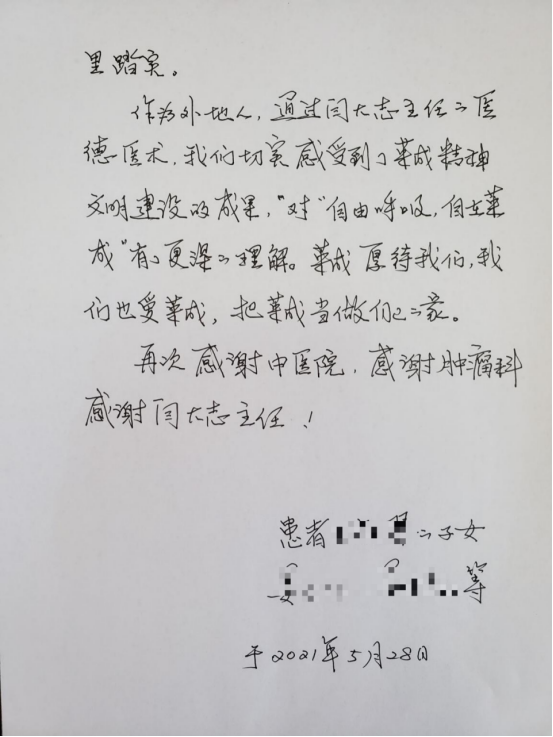 里踏实。
作为外地人，通过闫大志主任の医
德医术，我们切实感受到了荣成精神
文明建设的成果，"对"自由呼吸，自在荣
成"有了更深の理解。荣成厚待我们，我
们也爱荣成，把荣成当做自己の家。
再次感谢中医院，感谢肿瘤科
感谢闫大志主任！
患者 の子女
等
于2021年5月28日